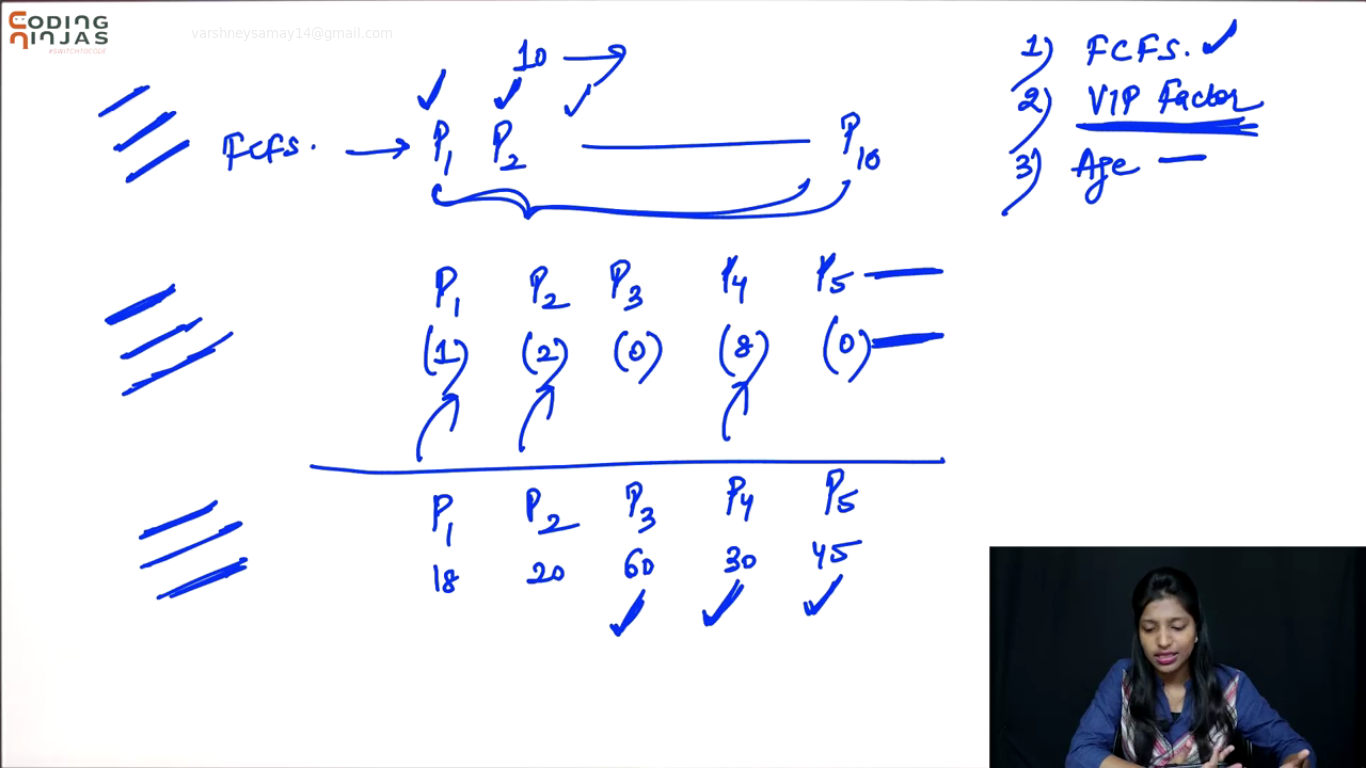 CODING
NINJAS
#SWITCHTOCODE
varshneysamay14@gmail.com
10
1) FCFS.
2) VIP Factor
3) Age
FCFS. P1 P2 P10
P1 P2 P3 P4 P5
(1) (2) (0) (8) (0)
P1 P2 P3 P4 P5
18 20 60 30 45